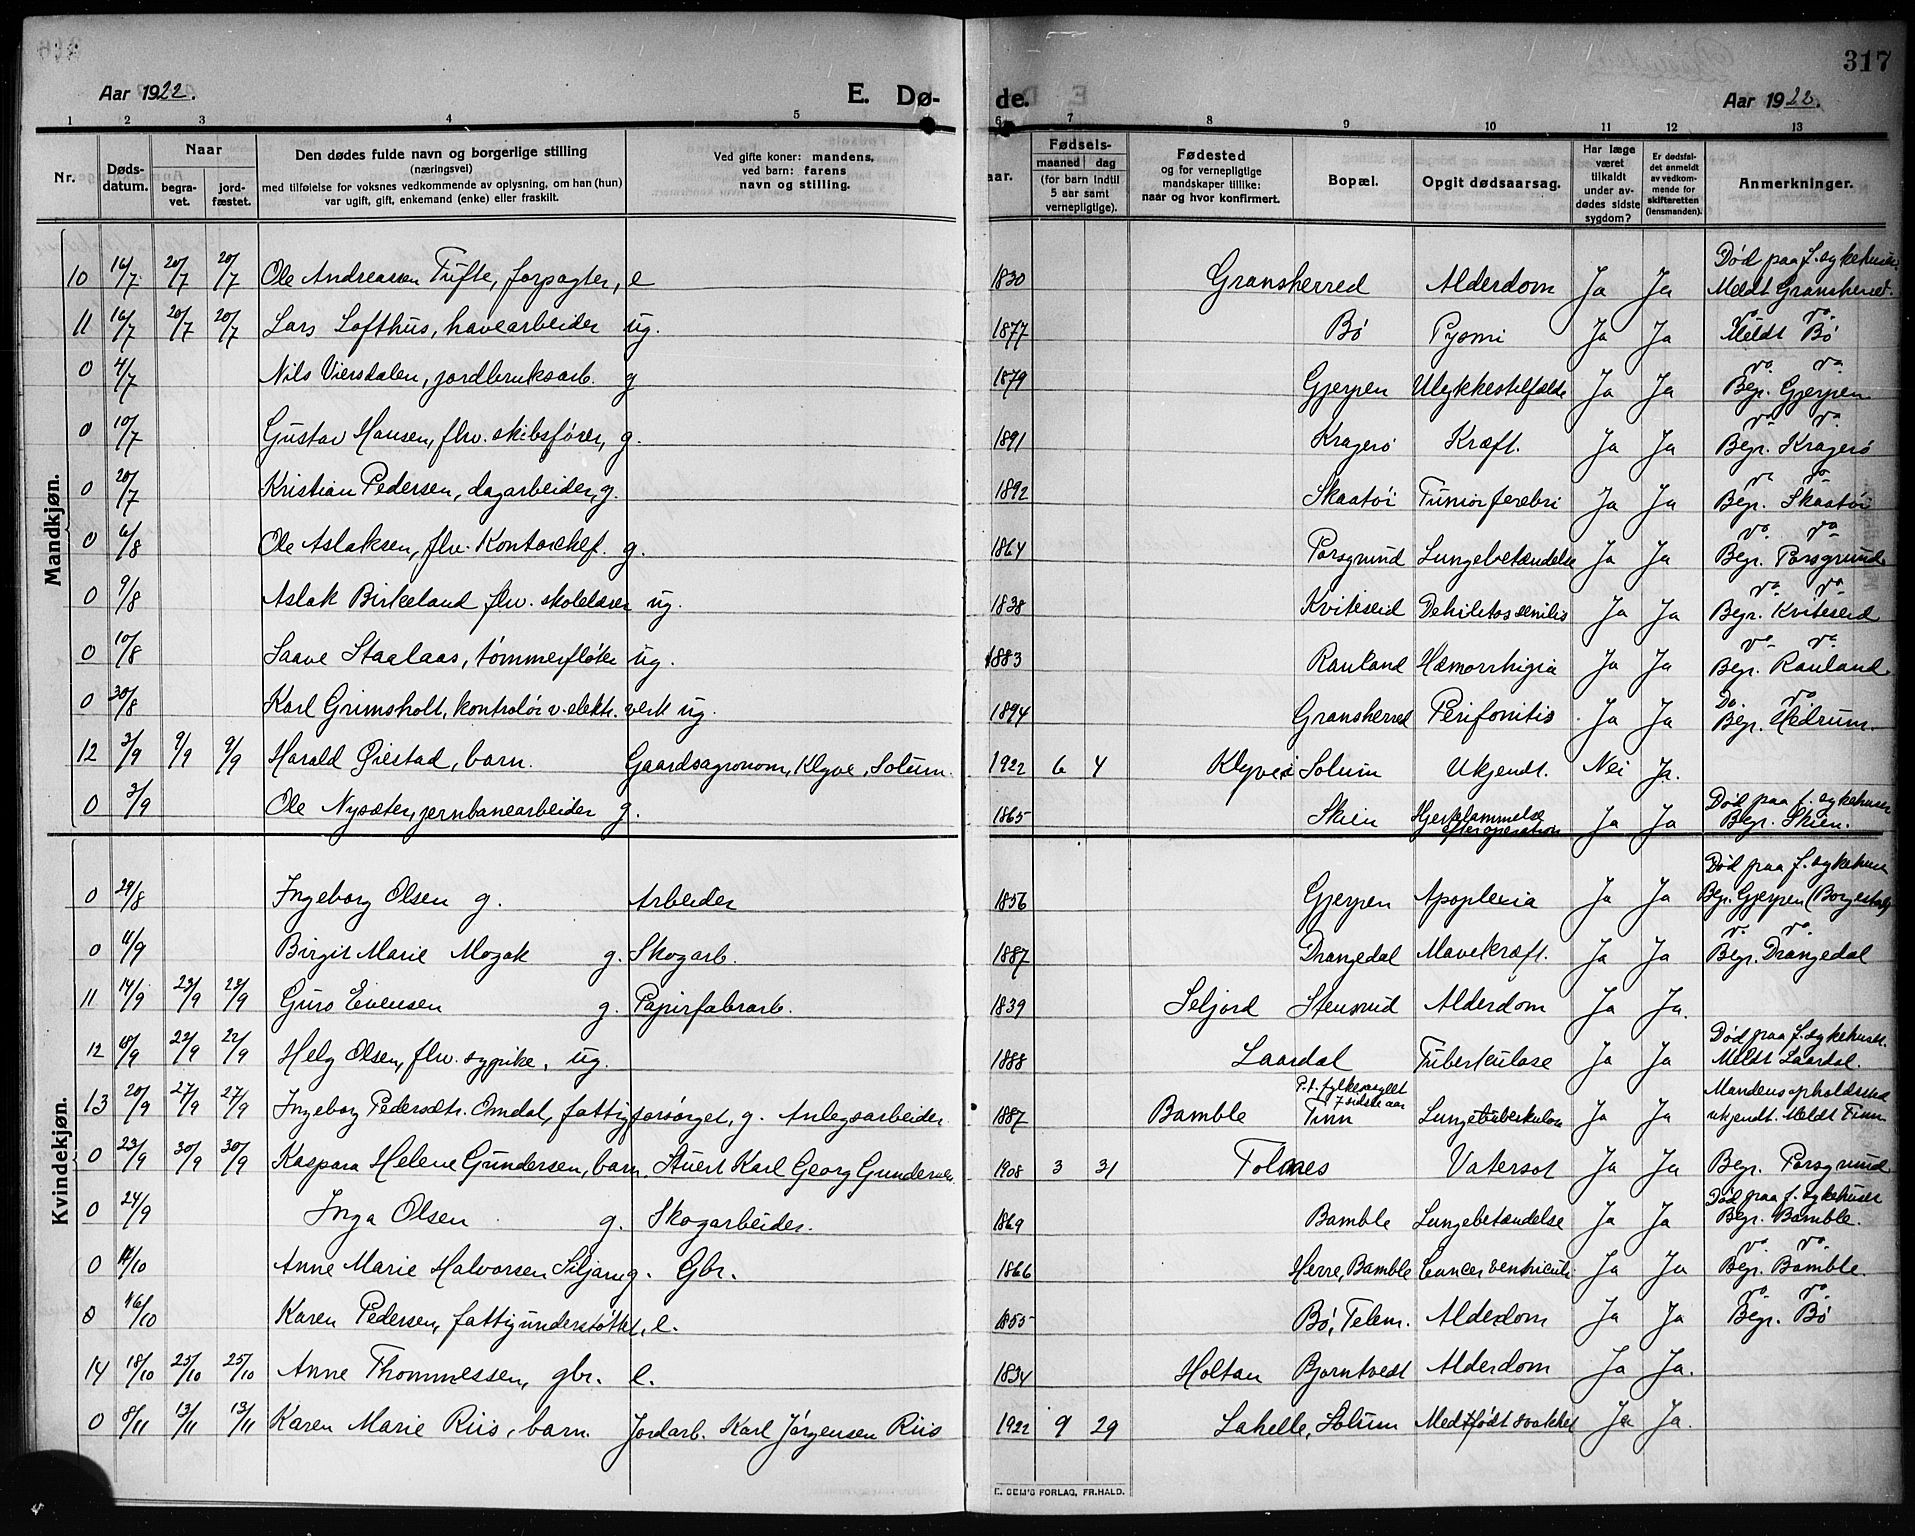 317
Aar 1922. E. Dø- de. Aar 1922.
1 2 3 4 5 6 7 8 9 10 11 12 13
Nr. Døds-datum. Naar begra-vet. jord-fæstet. Den dødes fulde navn og borgerlige stilling (næringsvei) med tilføielse for voksnes vedkommende av oplysning, om han (hun) var ugift, gift, enkemand (enke) eller fraskilt. Ved gifte koner: mandens, ved barn: farens navn og stilling. aar. Fødsels- maaned dag (for barn indtil 5 aar samt vernepligtige). Fødested og for vernepligtige mandskaper tillike: naar og hvor konfirmert. Bopæl. Opgit dødsaarsag. Har læge været tilkaldt under av-dødes sidste sygdom? Er dødsfal-det anmeldt av vedkom-mende for skifteretten (lensmanden). Anmerkninger.
Mandkjøn.
10 16/7 20/7 20/7 Ole Andreassen Tufte, forpagter, e 1830 Gransherred Alderdom Ja Ja Død paa f. sykehuset. Meldt Gransherred.
11 16/7 20/7 20/7 Lars Lofthus, havearbeider ug. 1877 Bø Pyomi Ja Ja vo vo Meldt Bø
0 4/7 Nils Viersdalen, jordbruksarb. g 1879 Gjerpen Ulykkestilfælde Ja Ja vo vo Begr. Gjerpen
0 10/7 Gustav Hansen, flv. skibsfører, g. 1891 Kragerø Kræft. Ja Ja vo vo Begr. Kragerø
0 20/7 Kristian Pedersen, dagarbeider, g. 1892 Skaatøi Ja Ja vo vo Begr. Skaatøi
0 6/8 Ole Aslaksen, flv. Kontorchef. g. 1864 Porsgrund Lungebetændelse Ja Ja vo vo Begr. Porsgrund
0 9/8 Aslak Birkeland flv. skolelærer ug. 1838 Kviteseid Debilitas senilis Ja Ja vo vo Begr. Kviteseid
0 10/8 Saave Staalaas, tømmerfløter ug. 1883 Rauland Hæmorrhigia Ja Ja vo vo Begr. Rauland
0 30/8 Karl Grimsholt, kontrolør v. elektr. verk ug. 1894 Gransherred Perifonitis Ja Ja Do. vo Begr. Hedrum.
12 3/9 9/9 9/9 Harald Øiestad, barn. Gaardsagronom, Klyve, Solum. 1922 6 4 Klyve i Solum Ukjendt. Nei Ja.
0 3/9 Ole Nysæter, jernbanearbeider g. 1865 Skien Hjertelammelse efter operation Ja Ja Død paa f. sykehuset Begr. Skien.
Kvindekjøn.
0 29/8 Ingeborg Olsen g. Arbeider 1856 Gjerpen Apoplexia Ja Ja Død paa f. sykehuset Begr. Gjerpen (Borgestad)
0 11/9 Birgit Marie Mozak g. Skogarb. 1887 Drangedal Mavekræft. Ja Ja v. vo. Begr. Drangedal
11 14/9 23/9 23/9 Guro Evensen g. Papirfabrarb. 1839 Seljord Stensrud Alderdom Ja Ja.
12 18/9 22/9 22/9 Helg Olsen, flv. sypike, ug. 1888 Laardal Tuberkulose Ja Ja Død paa f. sykehuset. Meldt Laardal.
13 20/9 27/9 27/9 Ingeborg Pedersdtr. Omdal, fattigforsørget, g. Anlegsarbeider 1887 Bamble P.t. fylkespleiet 7 sidste aar Tinn Lungetuberkulose Ja Ja Mandens opholdssted ukjendt. Meldt Tinn
0 23/9 30/9 30/9 Kaspara Helene Gundersen, barn. Stuert Karl Georg Gundersen 1908 3 31 Tolnes Vatersot Ja Ja Begr. Porsgrund
0 24/9 Inga Olsen g. Skogarbeider. 1869 Bamble Lungebetændelse Ja Ja Død paa f. sykehuset Begr. Bamble.
0 12/10 Anne Marie Halvorsen Siljan g. Gbr. 1866 Herre, Bamble Cancer ventriculi Ja Ja vo. vo. Begr. Bamble.
0 16/10 Karen Pedersen, fattigunderstøttet, e. 1855 Bø, Telem. Alderdom Ja Ja vo vo. Begr. Bø
14 18/10 25/10 25/10 Anne Thommessen, gbr. e. 1834 Holtan Bjorntvedt Alderdom Ja Ja.
0 8/11 13/11 13/11 Karen Marie Riis, barn. Jordarb. Karl Jørgensen Riis 1922 9 29 Lahelle, Solum Medfødt svakhet Ja Ja.
E. SEM'S FORLAG, FR.HALD.